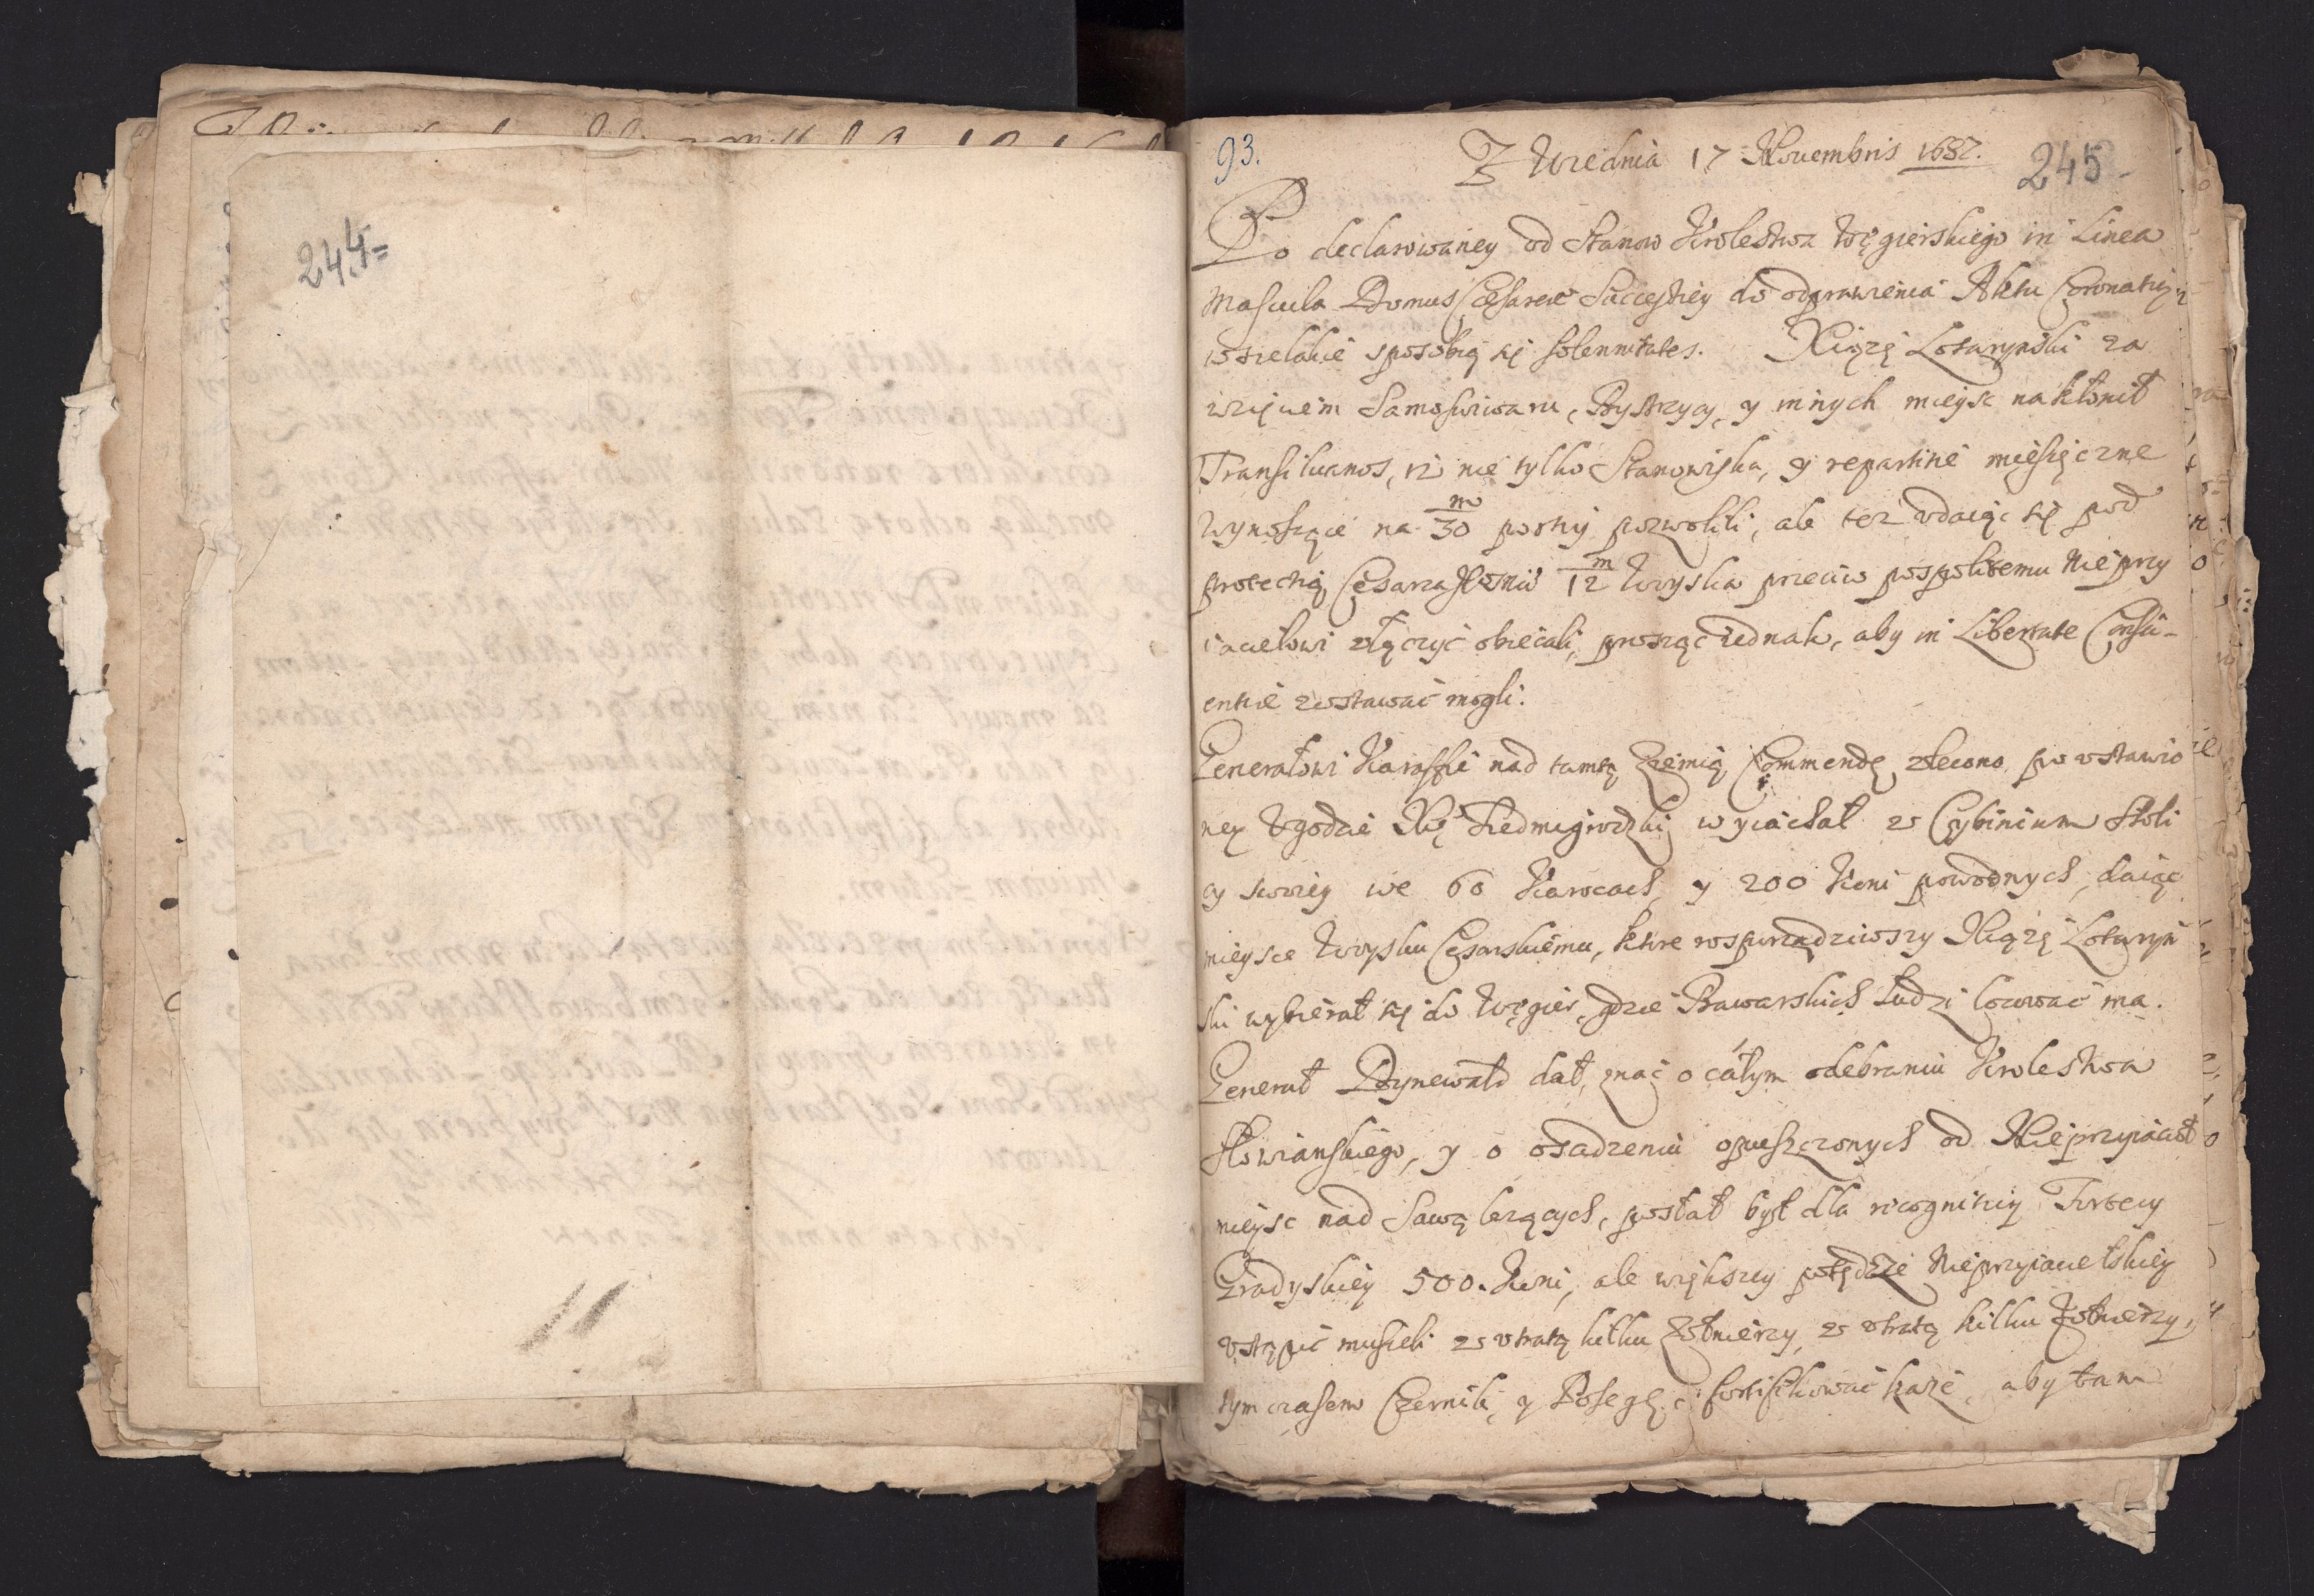 244=
93.
Z Wiednia 17 Novembris 1687.
245
Po declarowaney od Stanow Krolestwa Węgierskiego in Linea
Mascula Domus Cæsareæ Successiey do odprawienia Aktu Coronatiey
wszelakie sposobią się solennitates. Xiążę Lotaryński za
wzięciem Samosuiwaru, Bystrzycy, y innych mieysc nakłonił
Transiluanos, iż nie tylko Stanowiska, y repartitie miesięczne
wynoszące na m/30 portiy pozwolili, ale też vdaiąc się pod
protectią Cesarza Jmci m/12 Woyska przeciw pospolitemu Nieprzy
iacielowi złączyć obiecali, prosząc iednak, aby in Libertate Consci-
entiæ zostawać mogli.
Generałowi Karaffie nad tamtą Ziemią Commendę zlecono, po vstawio
ney Vgodzie Xżę Siedmigrodzki wyiachał z Cybinium Stoli
cy swoiey we 60 Karocach, y 200 Koni powodnych, daiąc
mieysce Woysku Cesarskiemu, ktore rosporządziwszy Xiążę Lotaryń
ski wybierał się do Węgier, gdzie Bawarskich Ludzi locować ma.
Generał Dynewald dał znać o całym odebraniu Krolestwa
Słowianskiego, y o osadzeniu opuszczonych od Nieprzyiaciół
mieysc nad Sawą leżących, posłał był dla recognitiey Fortecy
Gradyskiey 500. Koni, ale większey potędze Nieprzyiacielskiey
vstąpić musieli z vtratą kilku Żołnierzy, z vtratą kilku Żołnierzy,
tym czasem Czernik, y Posegę fortifikować każe, aby tam